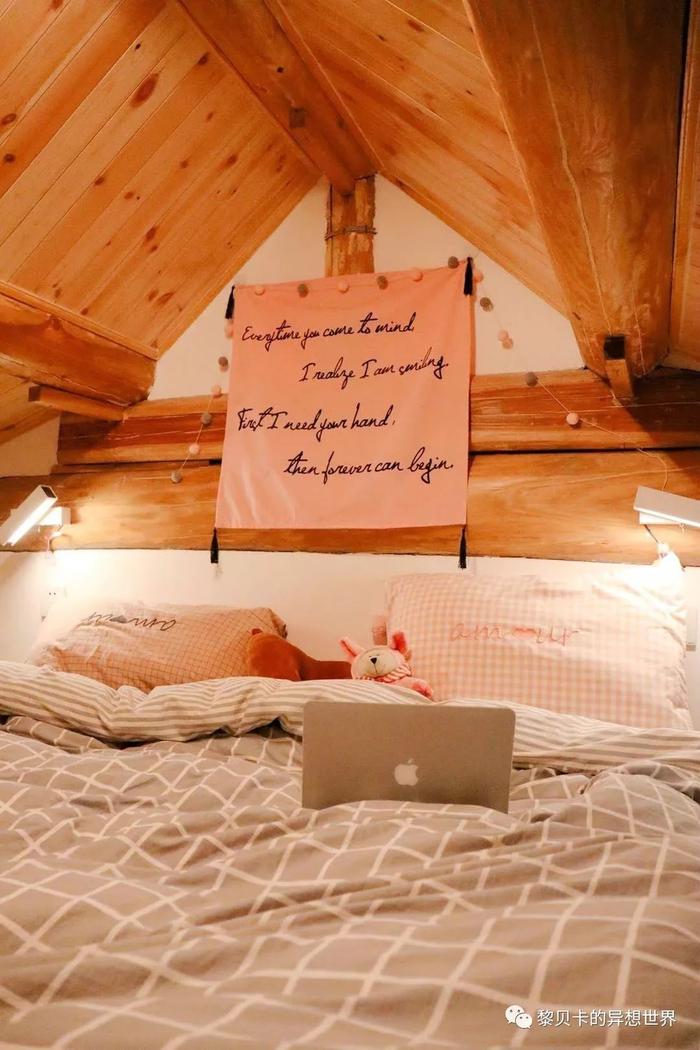 Everytime you come to mind,
I realize I am smiling.
First I need your hand,
then forever can begin.
amour
amour
黎贝卡的异想世界